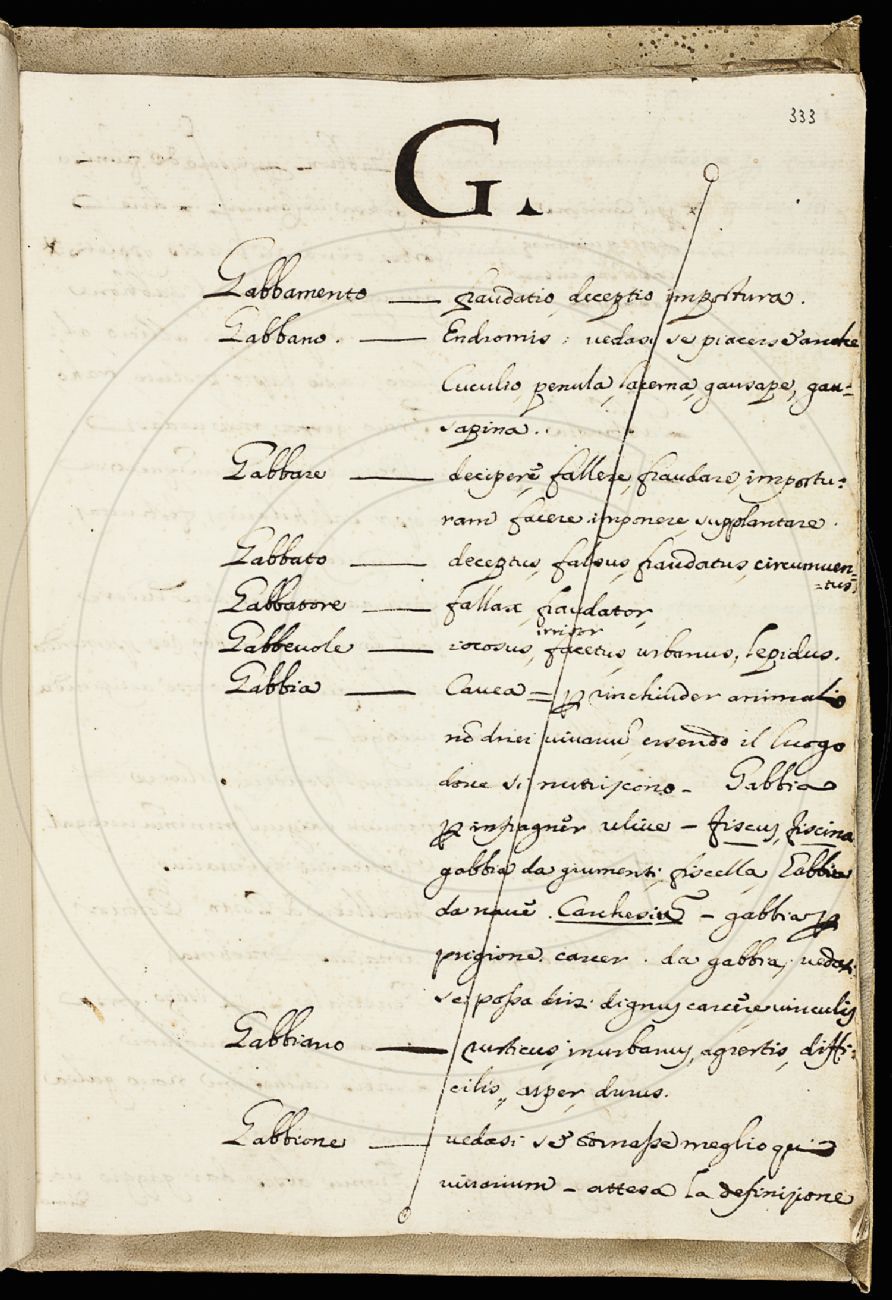 333
G.
Gabbamento — fraudatio, deceptio, impostura.
Gabbano. — Endromis; uedasi se piacesse anche
Cuculio, penula, lacerna, gausape, gau=
sapina.
Gabbare — decipere, fallere, fraudare, impostu:
ram facere, imponere, supplantare.
Gabbato — deceptus, falsus, fraudatus, circumuen=
=tus,
Gabbatore — fallax, fraudator,
irrisor
Gabbeuole — iocosus, facetus, urbanus, lepidus.
Gabbia — Cauea = p inchiuder animali
nõ direi uiuariũ, essendo il luogo
doue si nutriscono - Gabbia
p infragner uliue - fiscus, fiscina
gabbia da giumenti, fiscella, Gabbia
da naue. Carchesiũ - gabbia p
prigione. carcer. da gabbia, uedasi
se possa dirsi dignus carcere uinculis
Gabbiano — rusticus, inurbanus, agrestis, diffi:
cilis, asper, durus.
Gabbione — uedasi se tornasse meglio qui
uiuarium - attesa la definizione